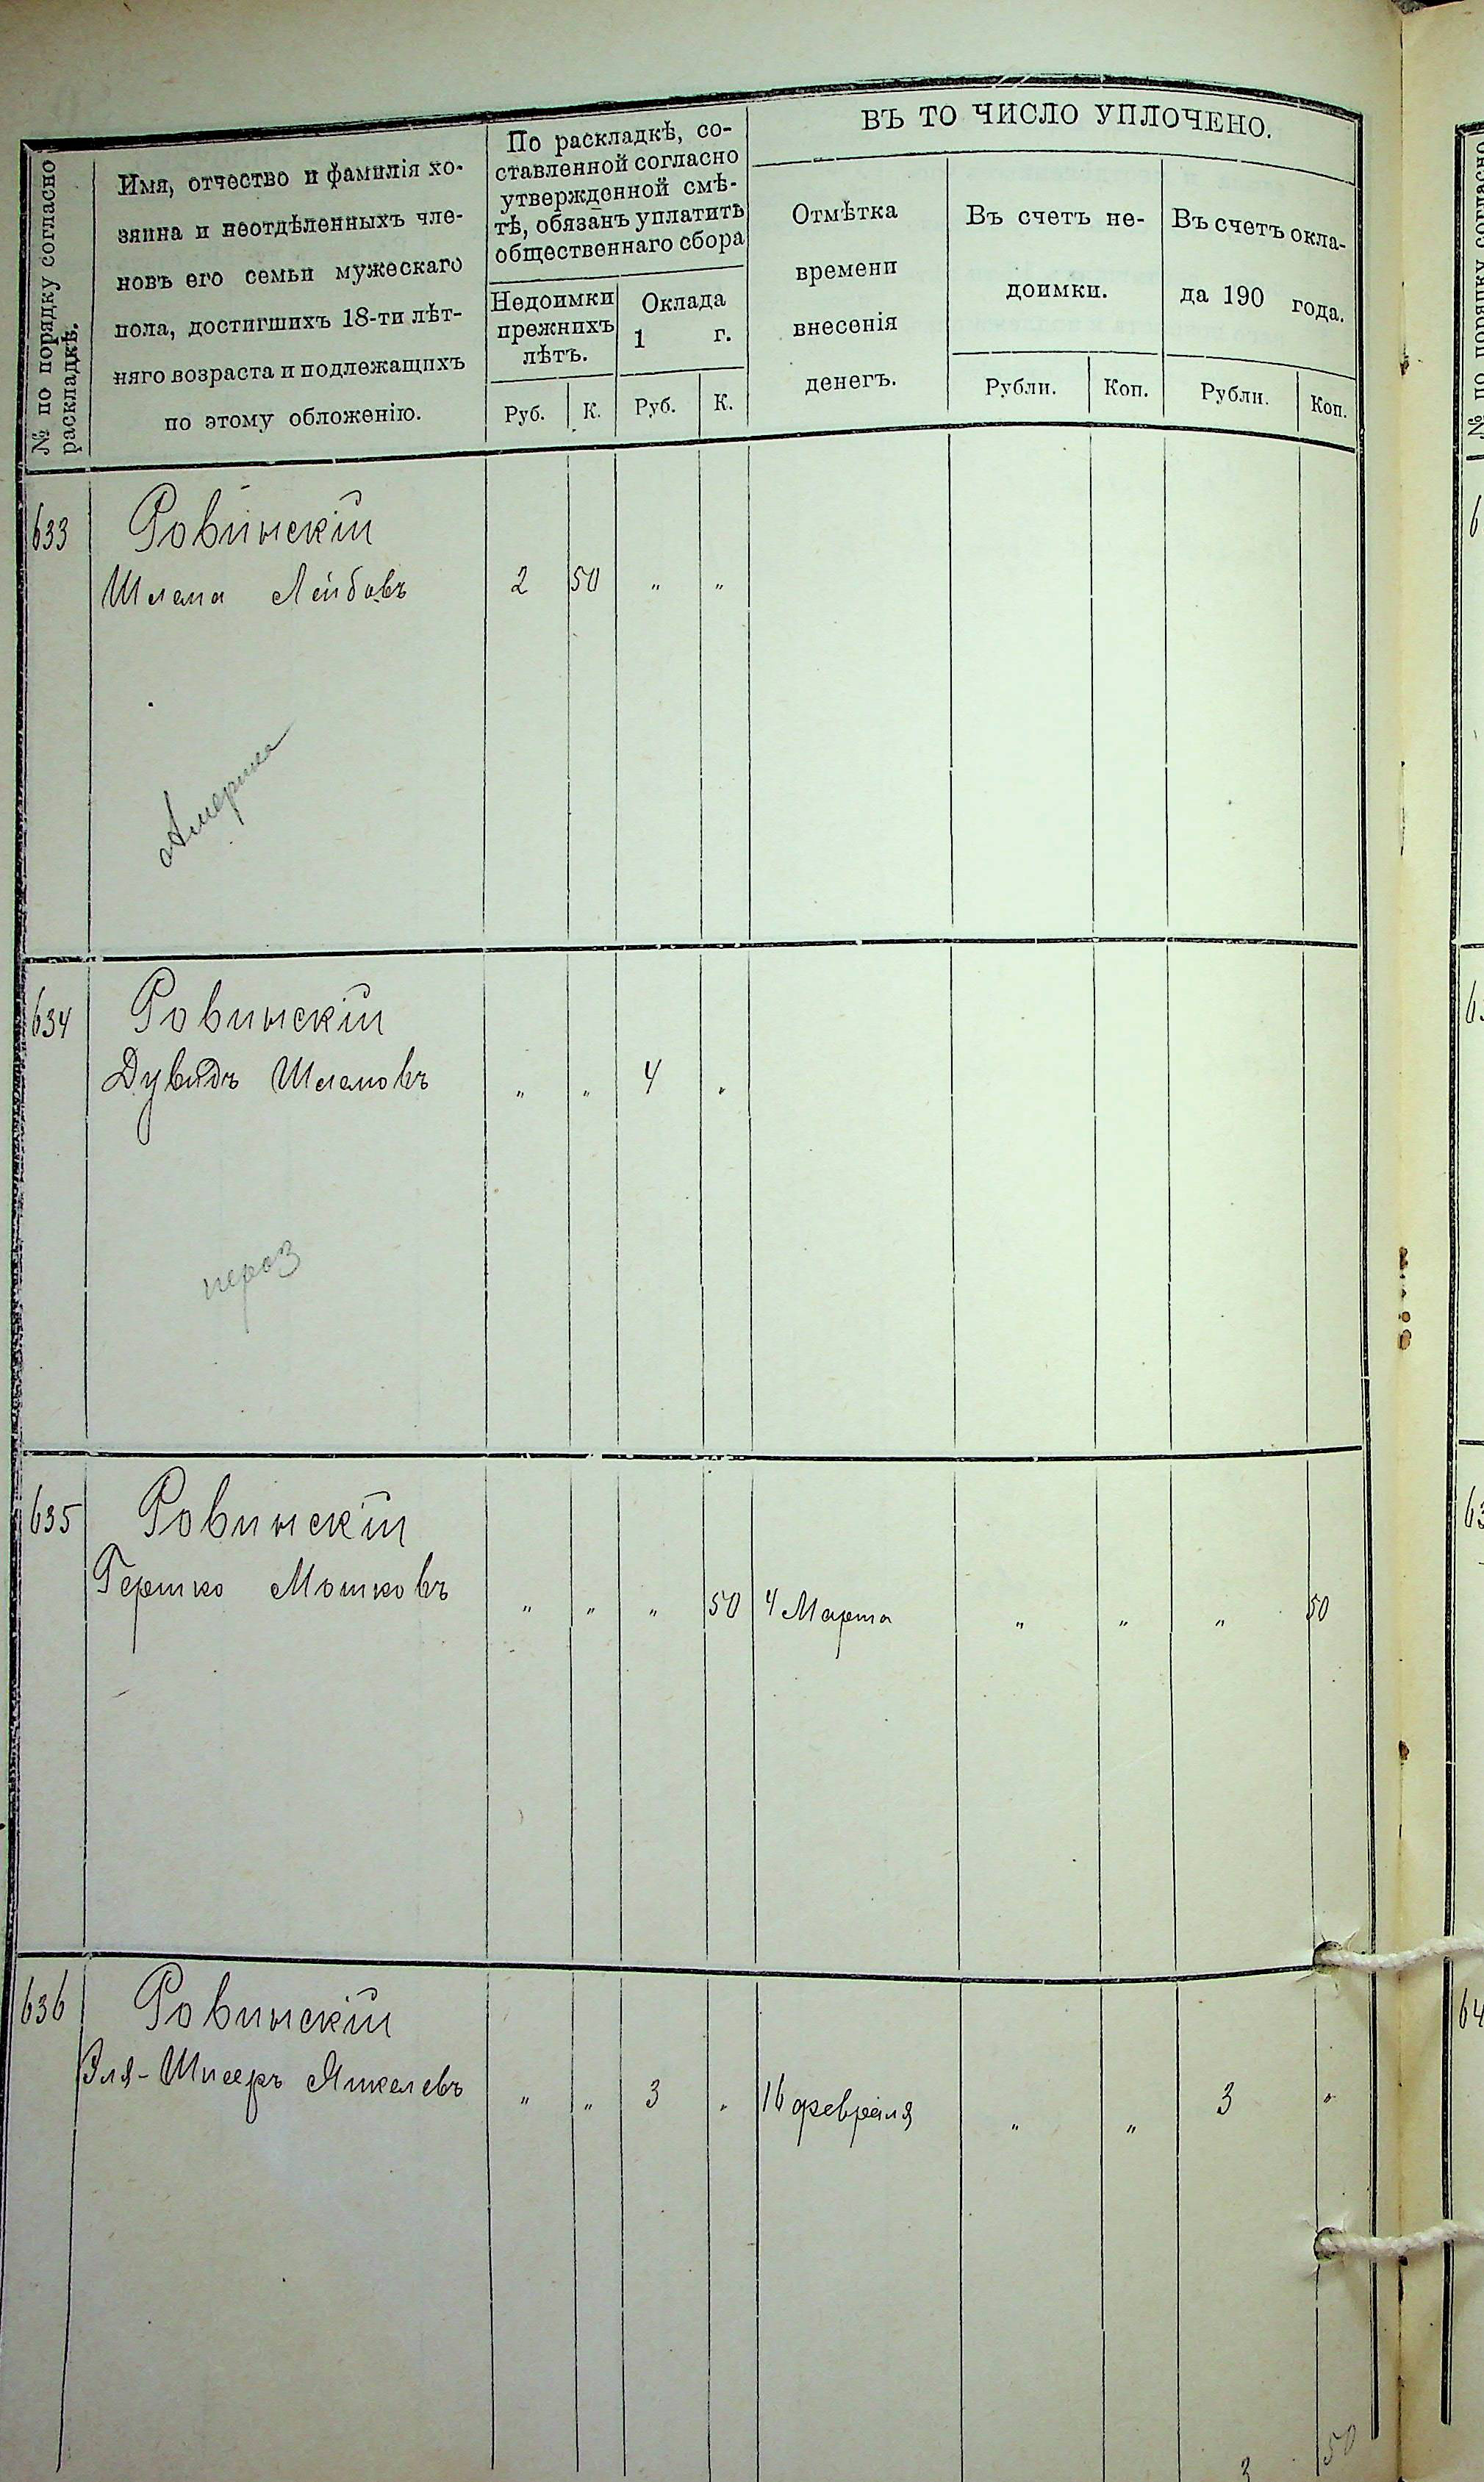 № по порядку согласно
раскладкѣ.
Имя, отчество и фамилія хо-
зяина и неотдѣленныхъ чле-
новъ его семьи мужескаго
пола, достигшихъ 18-ти лѣт-
няго возраста и подлежащихъ
по этому обложенію.
По раскладкѣ, со-
ставленной согласно
утвержденной смѣ-
тѣ, обязанъ уплатить
общественнаго сбора
Недоимки
прежнихъ
лѣтъ.
Оклада
1 г.
Руб. К. Руб. К.
ВЪ ТО ЧИСЛО УПЛОЧЕНО.
Отмѣтка
времени
внесенія
денегъ.
Въ счетъ не-
доимки.
Въ счетъ окла-
да 190 года.
Рубли. Коп. Рубли. Коп.
633 Ровинскій
Шлема Лейбовъ 2 50 " "
Америка
634 Ровинскій
Дувидъ Шлемовъ " " 4 "
635 Ровинскій
Гершко Мошковъ " " " 50 4 Марта " " " 50
636 Ровинскій
Эля-Шмеръ Янкелевъ " " 3 " 16 февраля " " 3 "
3 50